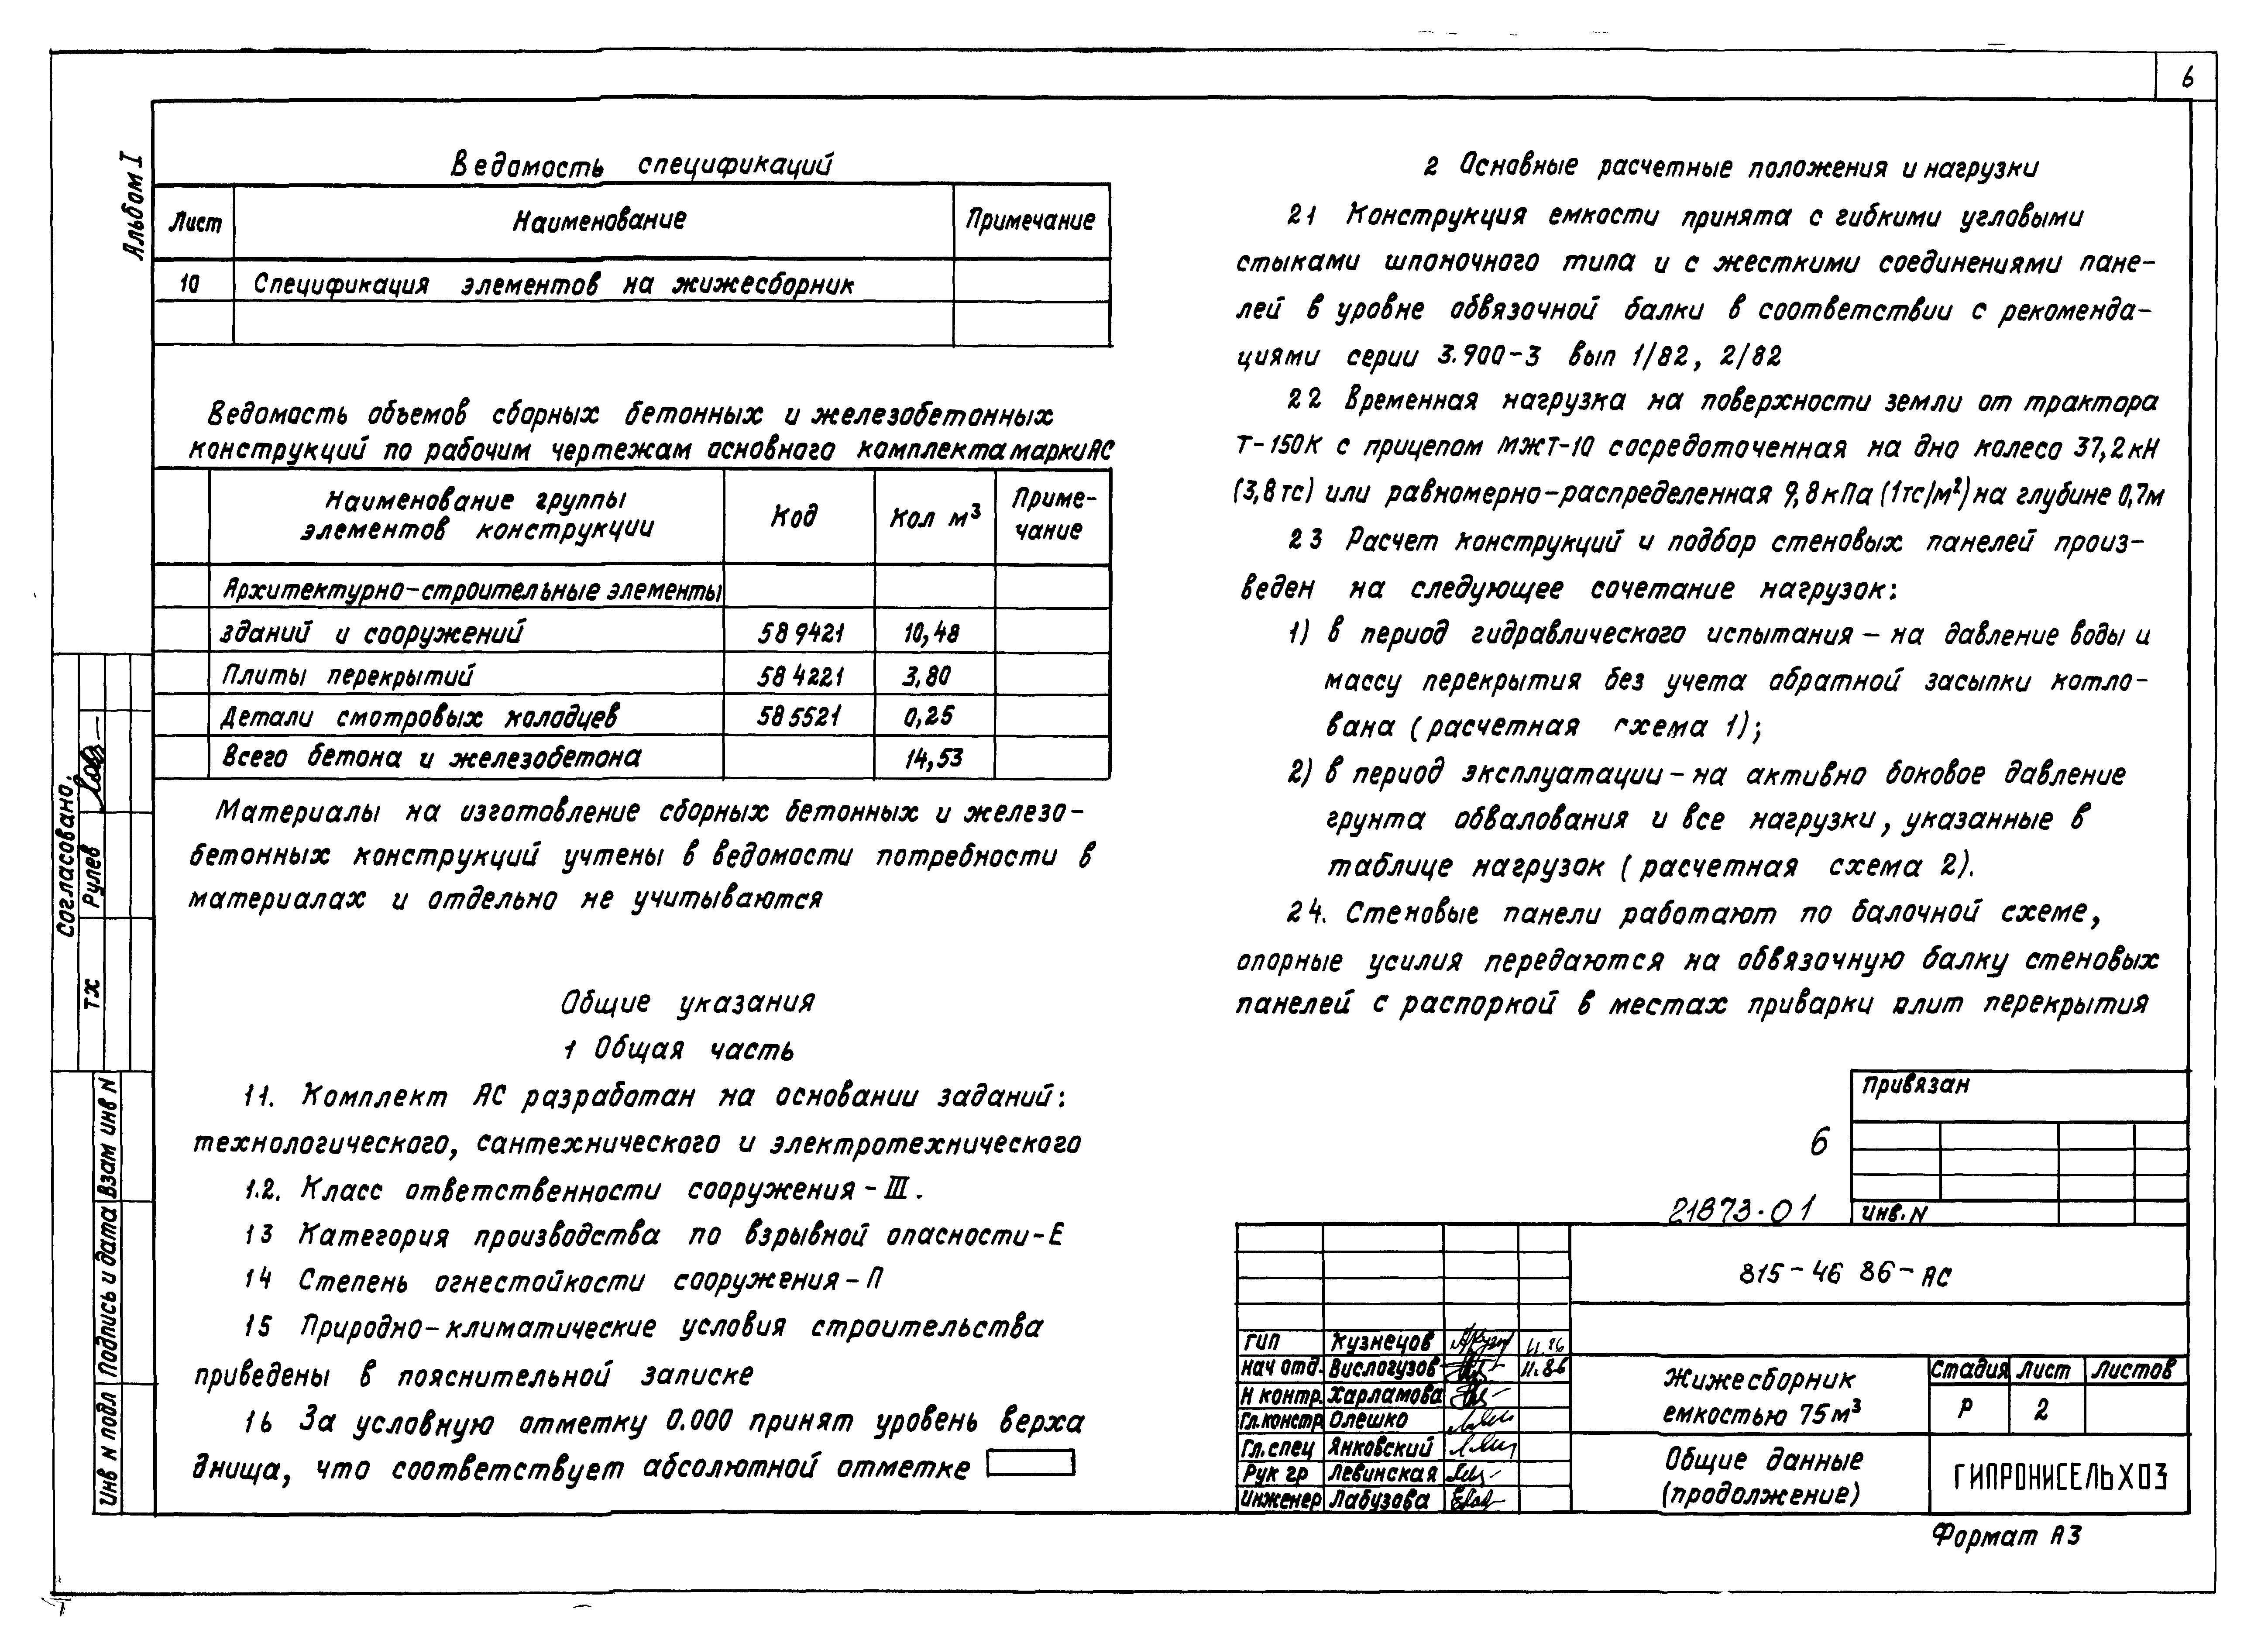 6
Альбом I
Ведомость спецификаций
Лист Наименование Примечание
10 Спецификация элементов на жижесборник
Ведомость объемов сборных бетонных и железобетонных
конструкций по рабочим чертежам основного комплекта марки АС
Наименование группы элементов конструкции Код Кол м³ Приме-чание
Архитектурно-строительные элементы
зданий и сооружений 58 9421 10,48
Плиты перекрытий 58 4221 3,80
Детали смотровых колодцев 58 5521 0,25
Всего бетона и железобетона 14,53
Материалы на изготовление сборных бетонных и железо-
бетонных конструкций учтены в ведомости потребности в
материалах и отдельно не учитываются
Общие указания
1 Общая часть
11. Комплект АС разработан на основании заданий:
технологического, сантехнического и электротехнического
1.2. Класс ответственности сооружения - III.
13 Категория производства по взрывной опасности - Е
14 Степень огнестойкости сооружения - П
15 Природно-климатические условия строительства
приведены в пояснительной записке
16 За условную отметку 0.000 принят уровень верха
днища, что соответствует абсолютной отметке
2 Основные расчетные положения и нагрузки
21 Конструкция емкости принята с гибкими угловыми
стыками шпоночного типа и с жесткими соединениями пане-
лей в уровне обвязочной балки в соответствии с рекоменда-
циями серии 3.900-3 вып 1/82, 2/82
22 Временная нагрузка на поверхности земли от трактора
Т-150К с прицепом МЖТ-10 сосредоточенная на дно колесо 37,2 кН
(3,8 тс) или равномерно-распределенная 9,8 кПа (1тс/м²) на глубине 0,7м
23 Расчет конструкций и подбор стеновых панелей произ-
веден на следующее сочетание нагрузок:
1) в период гидравлического испытания - на давление воды и
массу перекрытия без учета обратной засыпки котло-
вана (расчетная схема 1);
2) в период эксплуатации - на активно боковое давление
грунта обвалования и все нагрузки, указанные в
таблице нагрузок (расчетная схема 2).
24. Стеновые панели работают по балочной схеме,
опорные усилия передаются на обвязочную балку стеновых
панелей с распоркой в местах приварки плит перекрытия
Согласовано:
ТХ Рулев
Взам инв N
Подпись и дата
Инв N подл
Привязан
6
21873-01
Инв. N
815-46 86-АС
ГИП Кузнецов 11.86
Нач отд. Вислогузов 11.86
Н контр. Харламова
Гл.констр Олешко
Гл. спец Янковский
Рук гр Левинская
Инженер Лабузова
Жижесборник
емкостью 75 м³
Стадия Лист Листов
Р 2
Общие данные
(продолжение)
ГИПРОНИСЕЛЬХОЗ
Формат А3